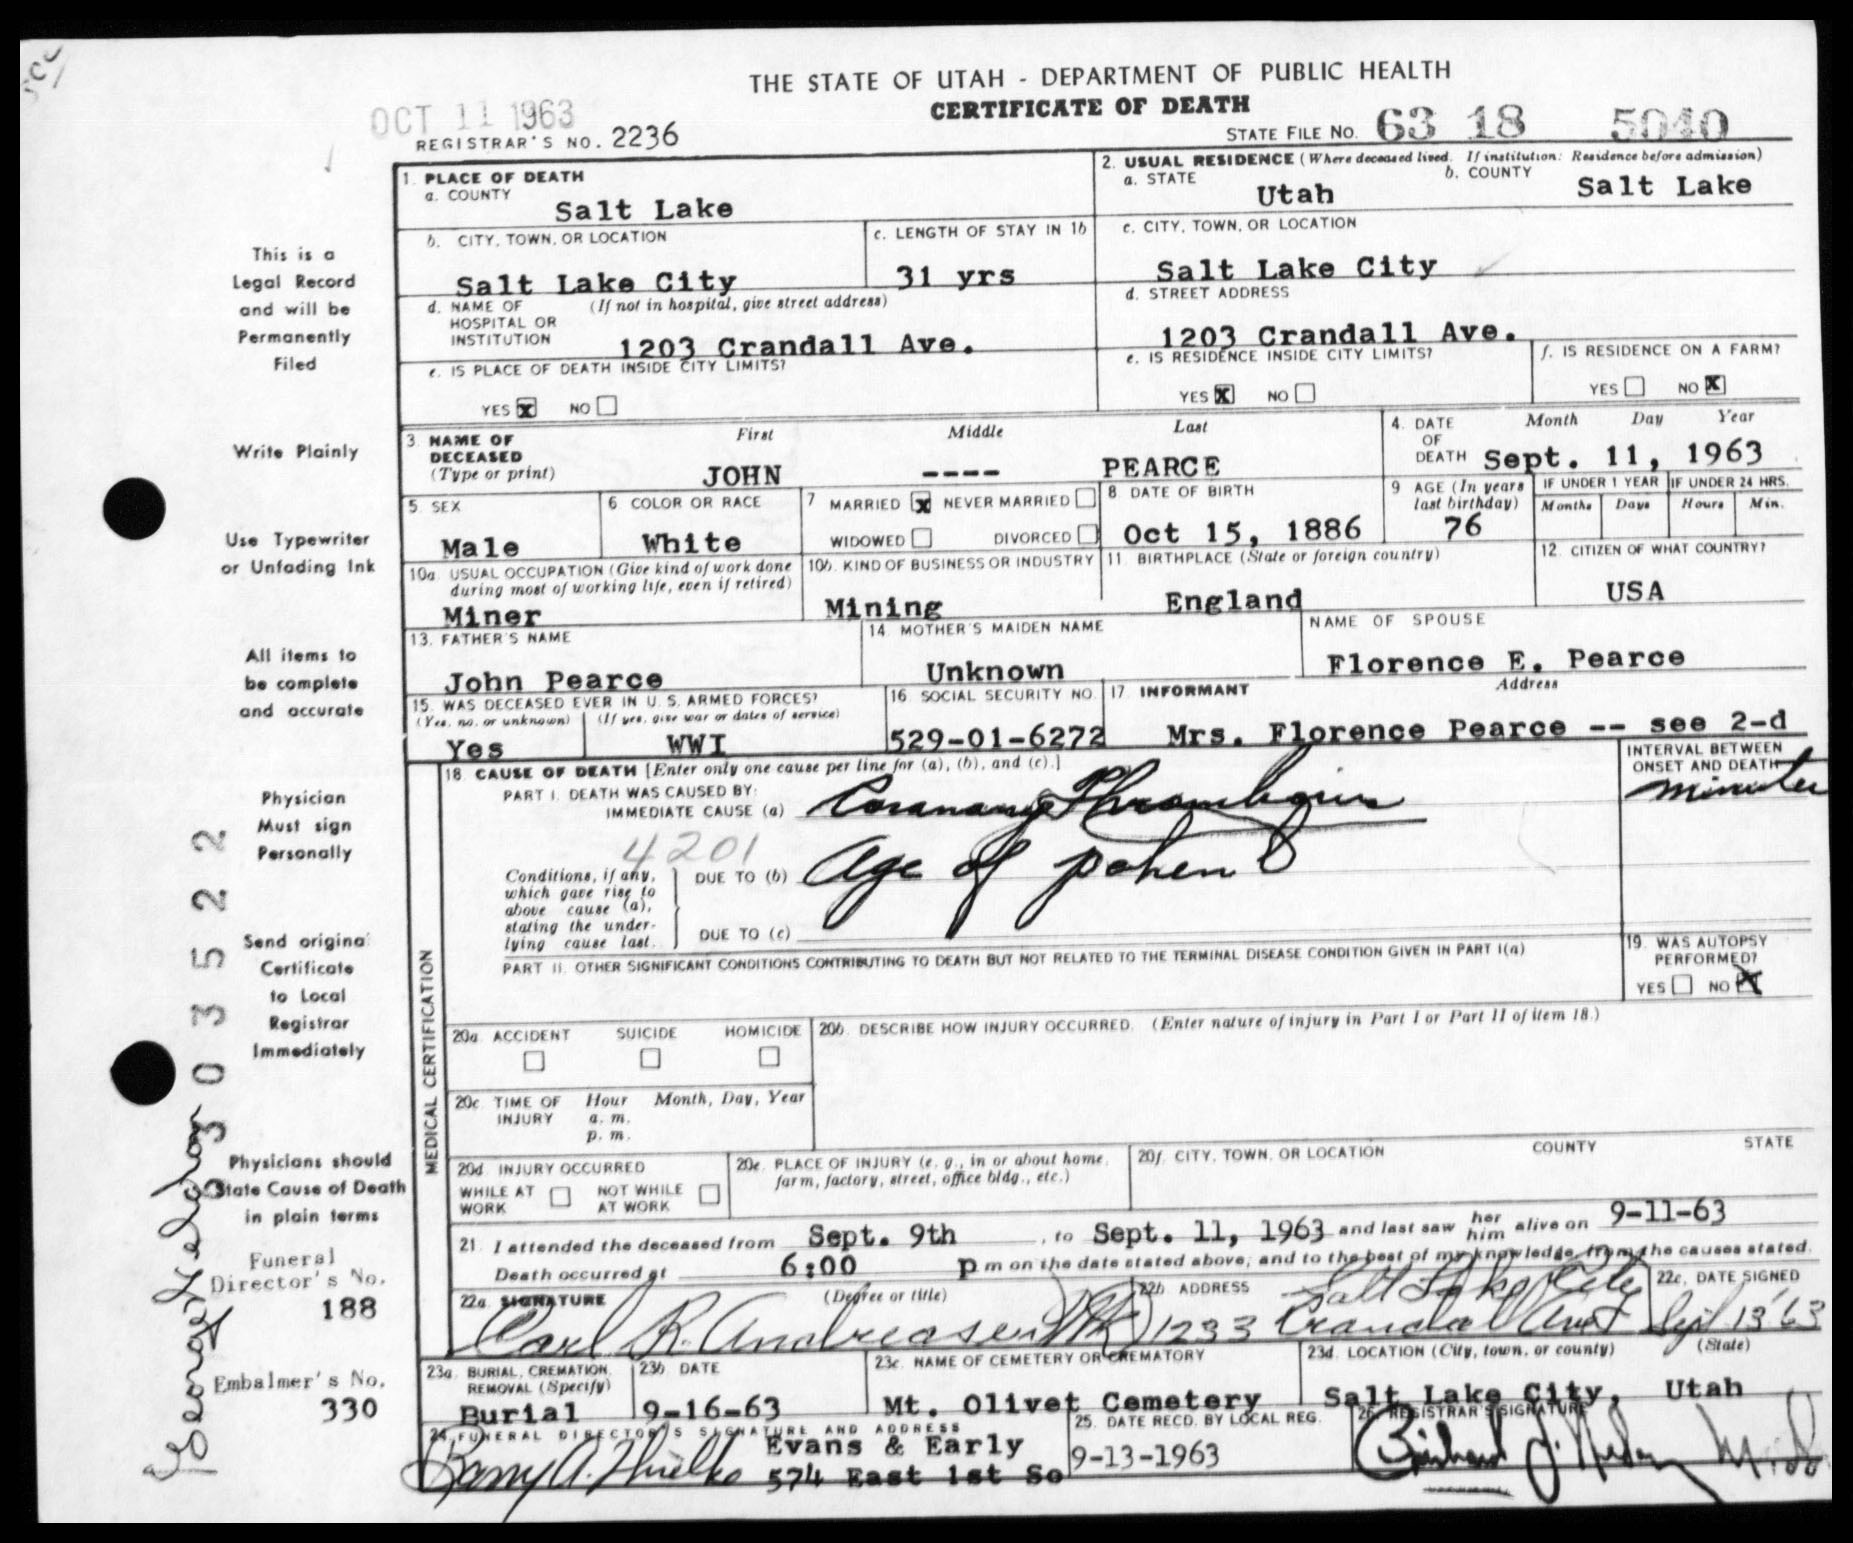 THE STATE OF UTAH - DEPARTMENT OF PUBLIC HEALTH
CERTIFICATE OF DEATH
OCT 11 1963
REGISTRAR'S NO. 2236
STATE FILE NO. 63 18 5040
1. PLACE OF DEATH
a. COUNTY
Salt Lake
2. USUAL RESIDENCE (Where deceased lived. If institution: Residence before admission)
a. STATE Utah
b. COUNTY Salt Lake
b. CITY, TOWN, OR LOCATION
Salt Lake City
c. LENGTH OF STAY IN 1b
31 yrs
c. CITY, TOWN, OR LOCATION
Salt Lake City
d. NAME OF HOSPITAL OR INSTITUTION (If not in hospital, give street address)
1203 Crandall Ave.
d. STREET ADDRESS
1203 Crandall Ave.
e. IS PLACE OF DEATH INSIDE CITY LIMITS?
YES X NO
e. IS RESIDENCE INSIDE CITY LIMITS?
YES X NO
f. IS RESIDENCE ON A FARM?
YES NO X
3. NAME OF DECEASED (Type or print)
First Middle Last
JOHN ---- PEARCE
4. DATE OF DEATH
Month Day Year
Sept. 11, 1963
5. SEX
Male
6 COLOR OR RACE
White
7 MARRIED X NEVER MARRIED
WIDOWED DIVORCED
8 DATE OF BIRTH
Oct 15, 1886
9 AGE (In years last birthday)
76
IF UNDER 1 YEAR IF UNDER 24 HRS.
Months Days Hours Min.
10a. USUAL OCCUPATION (Give kind of work done during most of working life, even if retired)
Miner
10b. KIND OF BUSINESS OR INDUSTRY
Mining
11 BIRTHPLACE (State or foreign country)
England
12. CITIZEN OF WHAT COUNTRY?
USA
13. FATHER'S NAME
John Pearce
14. MOTHER'S MAIDEN NAME
Unknown
NAME OF SPOUSE
Florence E. Pearce
15. WAS DECEASED EVER IN U. S. ARMED FORCES?
(Yes, no, or unknown) (If yes, give war or dates of service)
Yes WWI
16. SOCIAL SECURITY NO.
529-01-6272
17. INFORMANT Address
Mrs. Florence Pearce -- see 2-d
18. CAUSE OF DEATH [Enter only one cause per line for (a), (b), and (c).]
INTERVAL BETWEEN ONSET AND DEATH
PART I. DEATH WAS CAUSED BY:
IMMEDIATE CAUSE (a) Coronary Thrombosis
minutes
4201
Conditions, if any, which gave rise to above cause (a), stating the underlying cause last.
DUE TO (b) Age of
DUE TO (c)
PART II. OTHER SIGNIFICANT CONDITIONS CONTRIBUTING TO DEATH BUT NOT RELATED TO THE TERMINAL DISEASE CONDITION GIVEN IN PART I(a)
19. WAS AUTOPSY PERFORMED?
YES NO X
20a. ACCIDENT SUICIDE HOMICIDE
20b. DESCRIBE HOW INJURY OCCURRED. (Enter nature of injury in Part I or Part II of item 18.)
20c. TIME OF INJURY Hour Month, Day, Year
a. m.
p. m.
20d. INJURY OCCURRED
WHILE AT WORK NOT WHILE AT WORK
20e. PLACE OF INJURY (e. g., in or about home, farm, factory, street, office bldg., etc.)
20f. CITY, TOWN, OR LOCATION COUNTY STATE
21. I attended the deceased from Sept. 9th, to Sept. 11, 1963 and last saw her him alive on 9-11-63
Death occurred at 6:00 p m on the date stated above, and to the best of my knowledge, from the causes stated.
22a. SIGNATURE (Degree or title)
Carl R. Andreasen
22b. ADDRESS
Salt Lake City
1233 Crandall
22c. DATE SIGNED
Sept 13 '63
23a. BURIAL, CREMATION, REMOVAL (Specify)
Burial
23b. DATE
9-16-63
23c. NAME OF CEMETERY OR CREMATORY
Mt. Olivet Cemetery
23d. LOCATION (City, town, or county) (State)
Salt Lake City, Utah
24. FUNERAL DIRECTOR'S SIGNATURE AND ADDRESS
Evans & Early
574 East 1st So
25. DATE RECD. BY LOCAL REG.
9-13-1963
26. REGISTRAR'S SIGNATURE
MEDICAL CERTIFICATION
This is a
Legal Record
and will be
Permanently
Filed
Write Plainly
Use Typewriter
or Unfading Ink
All items to
be complete
and accurate
Physician
Must sign
Personally
Send original
Certificate
to Local
Registrar
Immediately
Physicians should
State Cause of Death
in plain terms
Funeral
Director's No.
188
Embalmer's No.
330